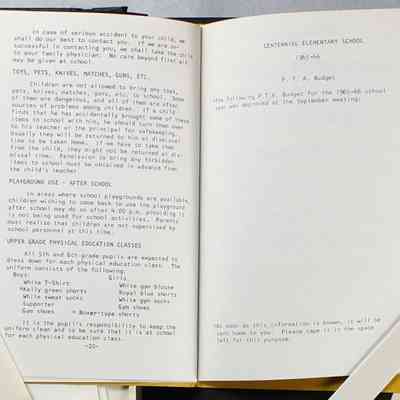 In case of serious accident to your child, we
shall do our best to contact you. If we are un-
successful in contacting you, we shall take the child
to your family physician. No care beyond first aid
may be given at school.
TOYS, PETS, KNIVES, MATCHES, GUNS, ETC.
Children are not allowed to bring toys,
pets, knives, matches, guns, etc., to school. Some
of them are dangerous, and all of them are often
sources of problems among children. If a child
finds that he has accidentally brought some of these
items to school with him, he should turn them over
to his teacher or the principal for safekeeping.
Usually they will be returned to him at dismissal
time to be taken home. If we have to take them
from the child, they might not be returned at dis-
missal time. Permission to bring any forbidden
items to school must be obtained in advance from
the child's teacher.
PLAYGROUND USE - AFTER SCHOOL
In areas where school playgrounds are available,
children wishing to come back to use the playground
after school may do so after 4:00 p.m. providing it
is not being used for school activities. Parents
must realize that children are not supervised by
school personnel at this time.
UPPER GRADE PHYSICAL EDUCATION CLASSES
All 5th and 6th-grade pupils are expected to
dress down for each physical education class. The
uniform consists of the following:
Boys: Girls:
White T-Shirt White gym blouse
*Kelly green shorts Royal blue shorts
White sweat socks White gym socks
Supporter Gym shoes
Gym shoes * Boxer-type shorts
It is the pupil's responsibility to keep the
uniform clean and to be sure that it is at school
for each physical education class.
-20-
CENTENNIAL ELEMENTARY SCHOOL
1965-66
P. T. A. Budget
The following P.T.A. Budget for the 1965-66 school
year was approved at the September meeting:
*As soon as this information is known, it will be
sent home to you. Please tape it in the space
left for this purpose.